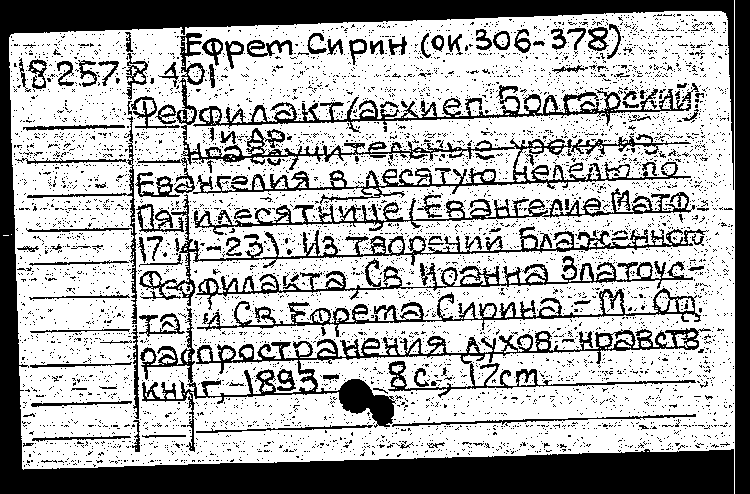 Ефрем Сирин (ок. 306-378)
18.257.8.401
Феофилакт (архиеп. Болгарский)
и др.
Нравоучительные уроки из
Евангелия в десятую неделю по
Пятидесятнице (Евангелие Матф.
17.14-23): Из творений Блаженного
Феофилакта, Св. Иоанна Златоус-
та и Св. Ефрема Сирина.- М.: Отд.
распространения духов.-нравств.
книг, 1893- 8 с.; 17 cm.